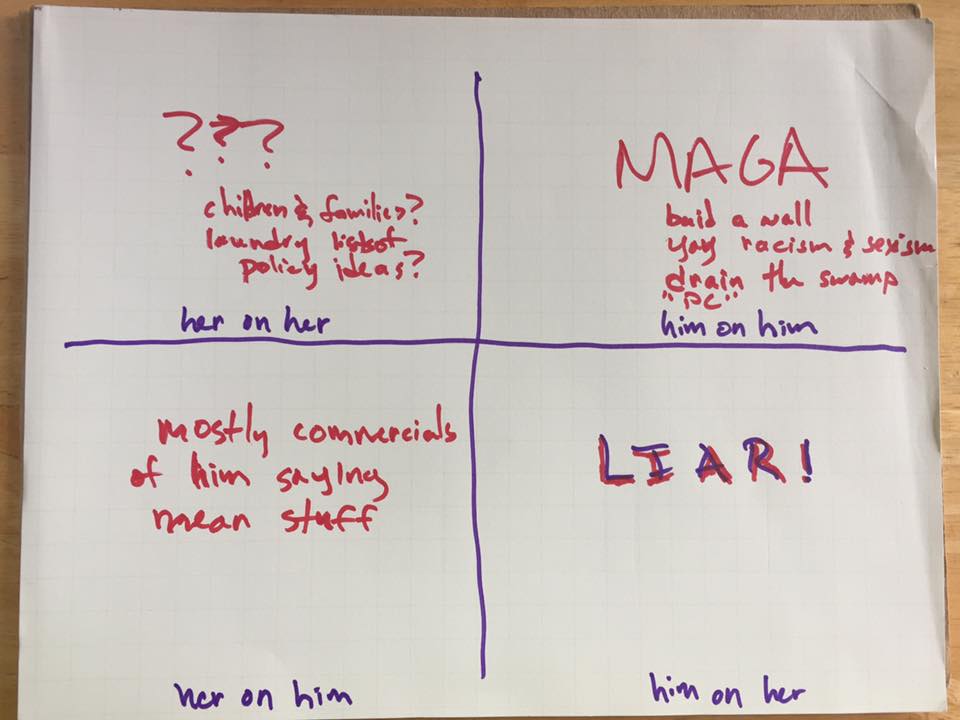 ???
children & families?
laundry lists of
policy ideas?
her on her
MAGA
buid a wall
yay racism & sexism
drain the swamp
"PC"
him on him
mostly commercials
of him saying
mean stuff
her on him
LIAR!
him on her